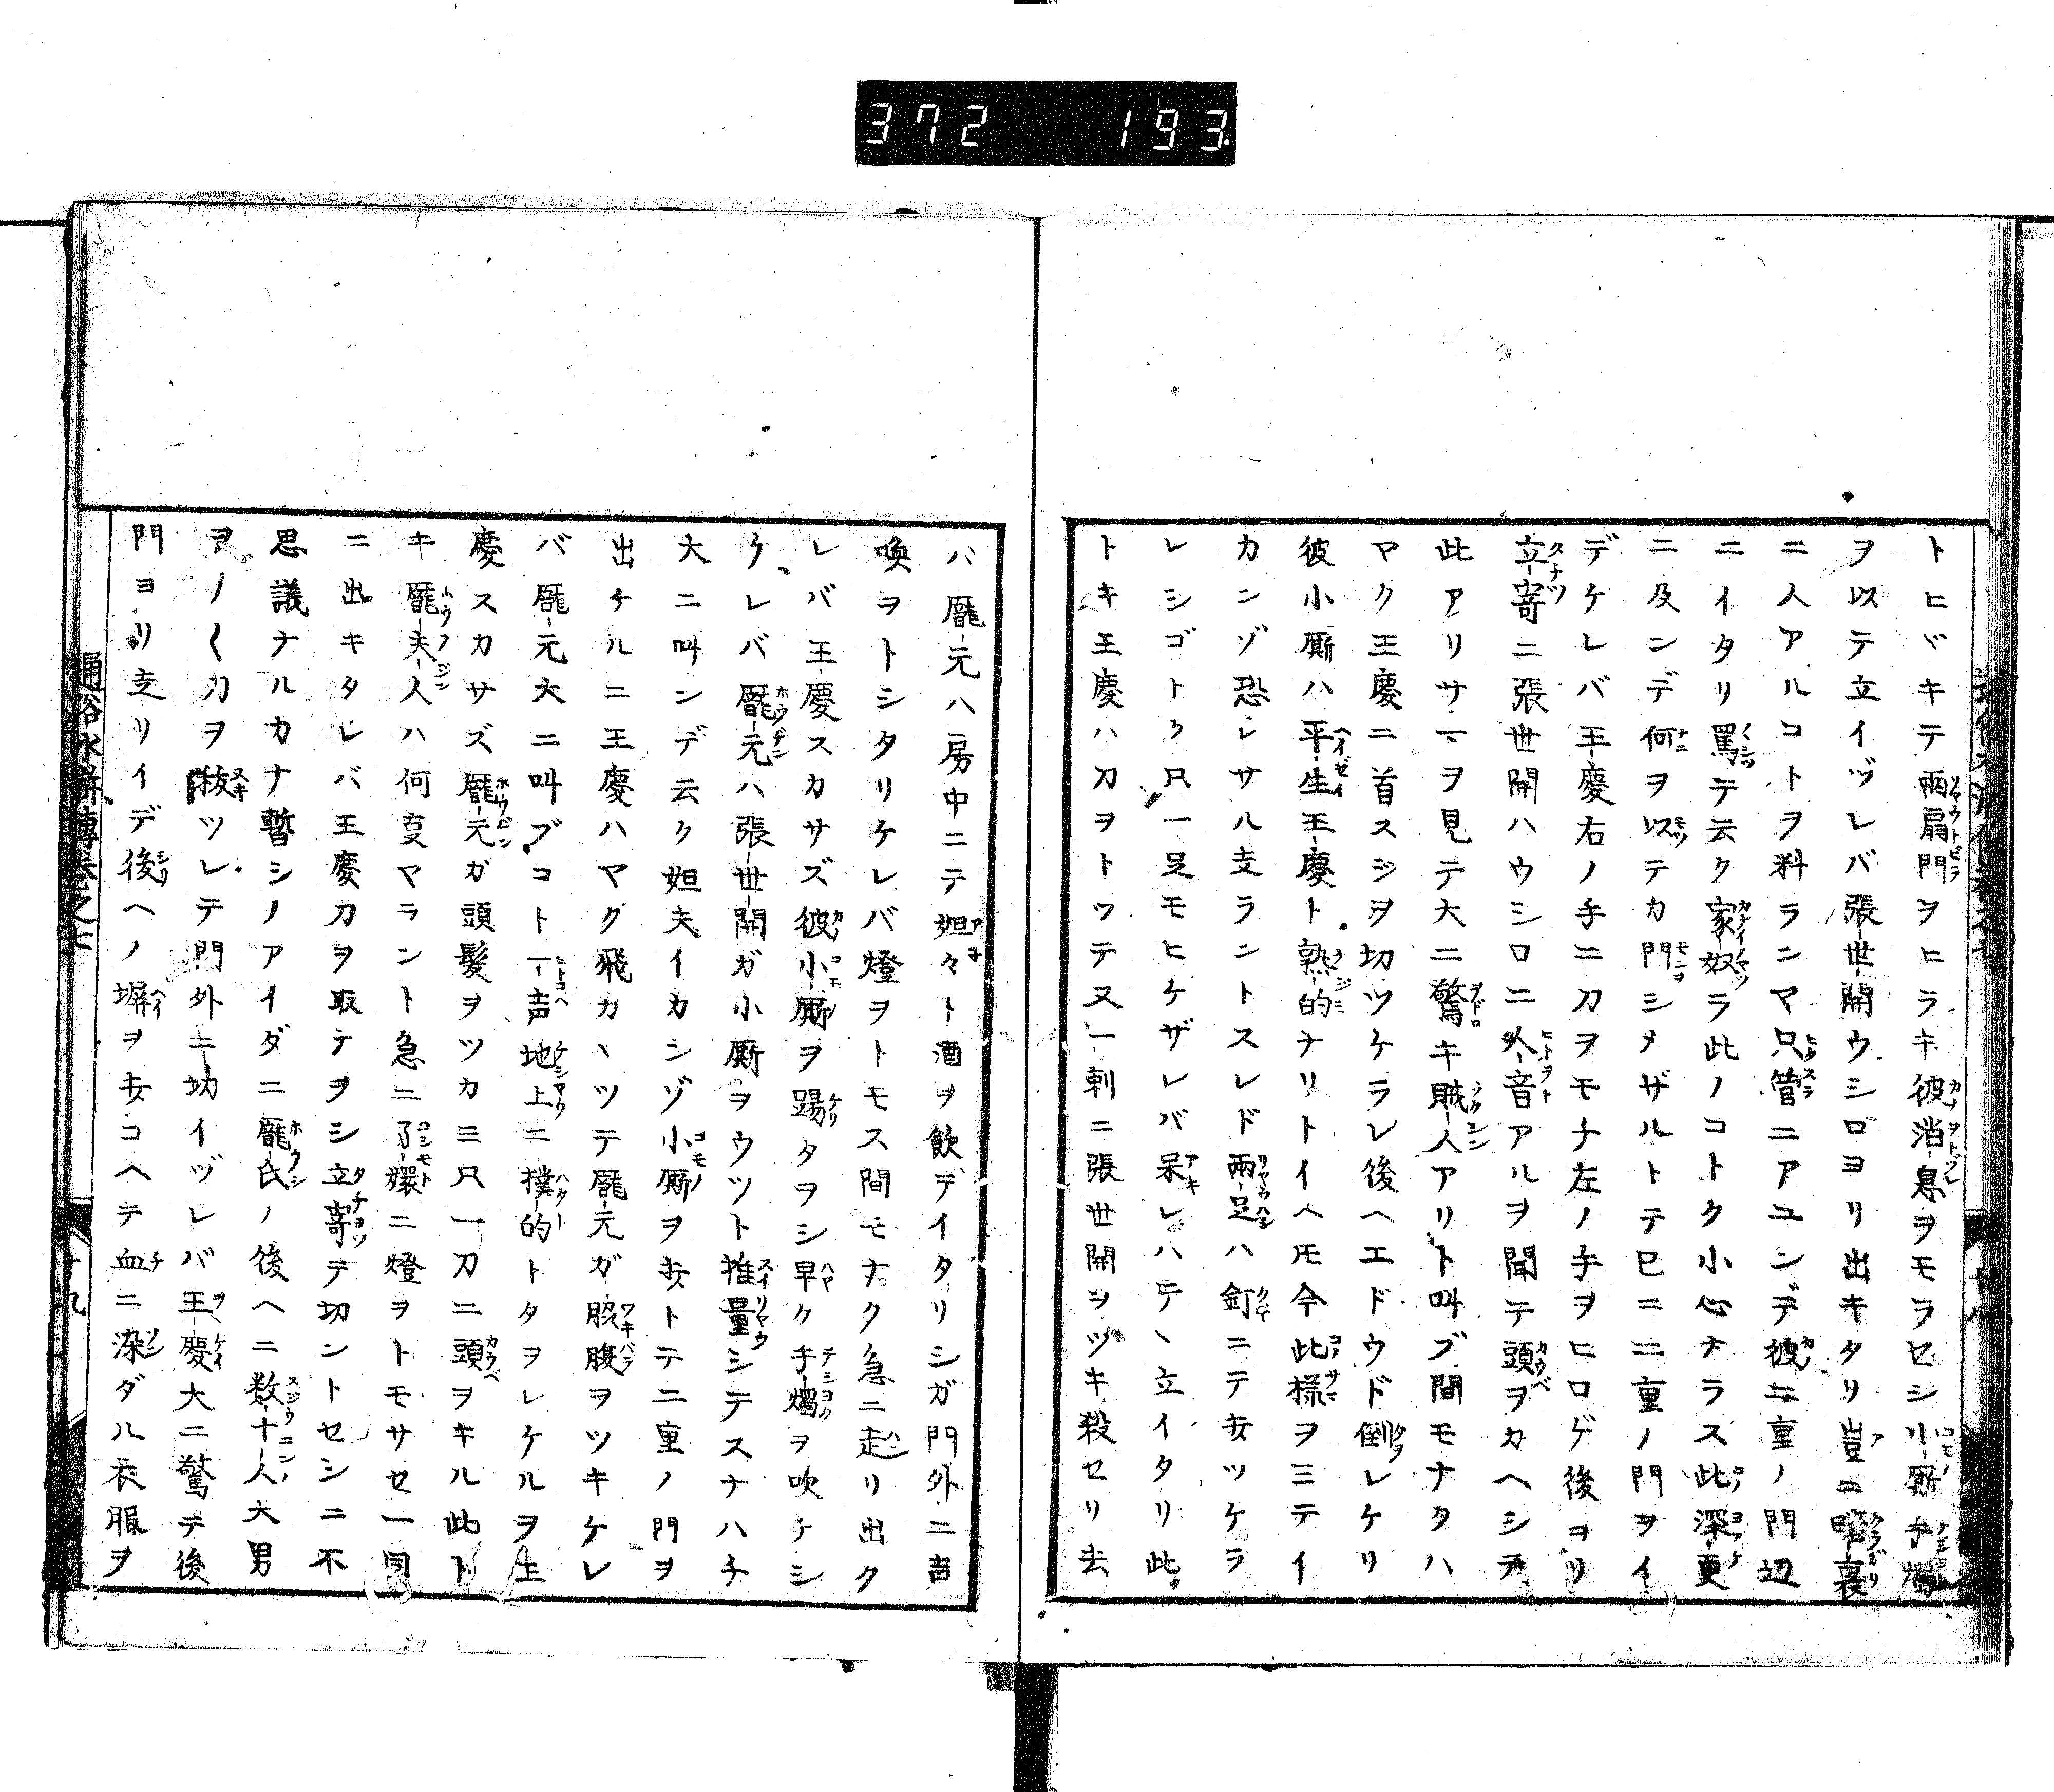 372 193
トヒバキテ兩扇門ヲヒラキ彼消息ヲモラセシ小厮手燭
ヲ以テ立イヅレバ張世開ウシロヨリ出キタリ豈ニ暗裏
ニ人アルコトヲ料ランマ只管ニアユンデ彼二重ノ門辺
ニイタリ罵テ云ク家奴ラ此ノコトク小心ナラス此深更
ニ及ンデ何ヲ以テカ門シメザルトテ已ニ二重ノ門ヲイ
デケレバ王慶右ノ手ニ刀ヲモチ左ノ手ヲヒロゲ後ヨリ
立寄ニ張世開ハウシロニ人音アルヲ聞テ頭ヲカヘシテ
此アリサマヲ見テ大ニ驚キ賊人アリト叫ブ間モナタハ
マク王慶ニ首スジヲ切ツケラレ後ヘエドウド倒レケリ
彼小厮ハ平生王慶ト熟的ナリトイヘ𪜈今此様ヲミテイ
カンゾ恐レサル支ラントスレド兩足ハ釘ニテ㚑ツケラ
レシゴトク只一足モヒケザレバ呆レハテヽ立イタリ此
トキ王慶ハ刀ヲトツテ又一刺ニ張世開ヲツキ殺セリ去
バ龎元ハ房中ニテ姐々ト酒ヲ飲デイタリシガ門外ニ声
喚ヲトシタリケレバ燈ヲトモス間モナク急ニ走リ出ク
レバ王慶スカサズ彼小厮ヲ踢タヲシ早ク手燭ヲ吹ケシ
ケレバ龎元ハ張世開ガ小厮ヲウツト推量シテスナハチ
大ニ叫ンデ云ク姐夫イカンゾ小厮ヲ㚑トテ二重ノ門ヲ
出ケルニ王慶ハマグ飛カヽツテ龎元ガ脇腹ヲツキケレ
バ龎元大ニ叫ブコト一声地上ニ撲的トタヲレケルヲ王
慶スカサズ龎元カ頭髪ヲツカミ只一刀ニ頭ヲキル此ト
キ龎夫人ハ何叓マラント急ニ了嬛ニ燈ヲトモサセ一同
ニ出キタレバ王慶刀ヲ取テヲシ立寄テ切ントセシニ不
思議ナルカナ暫シノアイダニ龎氏ノ後ヘニ数十人大男
ヲノ〱刀ヲ抜ツレテ門外キ切イヅレバ王慶大ニ驚テ後
門ヨリ走リイデ後ヘノ塀ヲ㚑コヘテ血ニ染ダル衣服ヲ
通俗水滸傳巻之七
十九